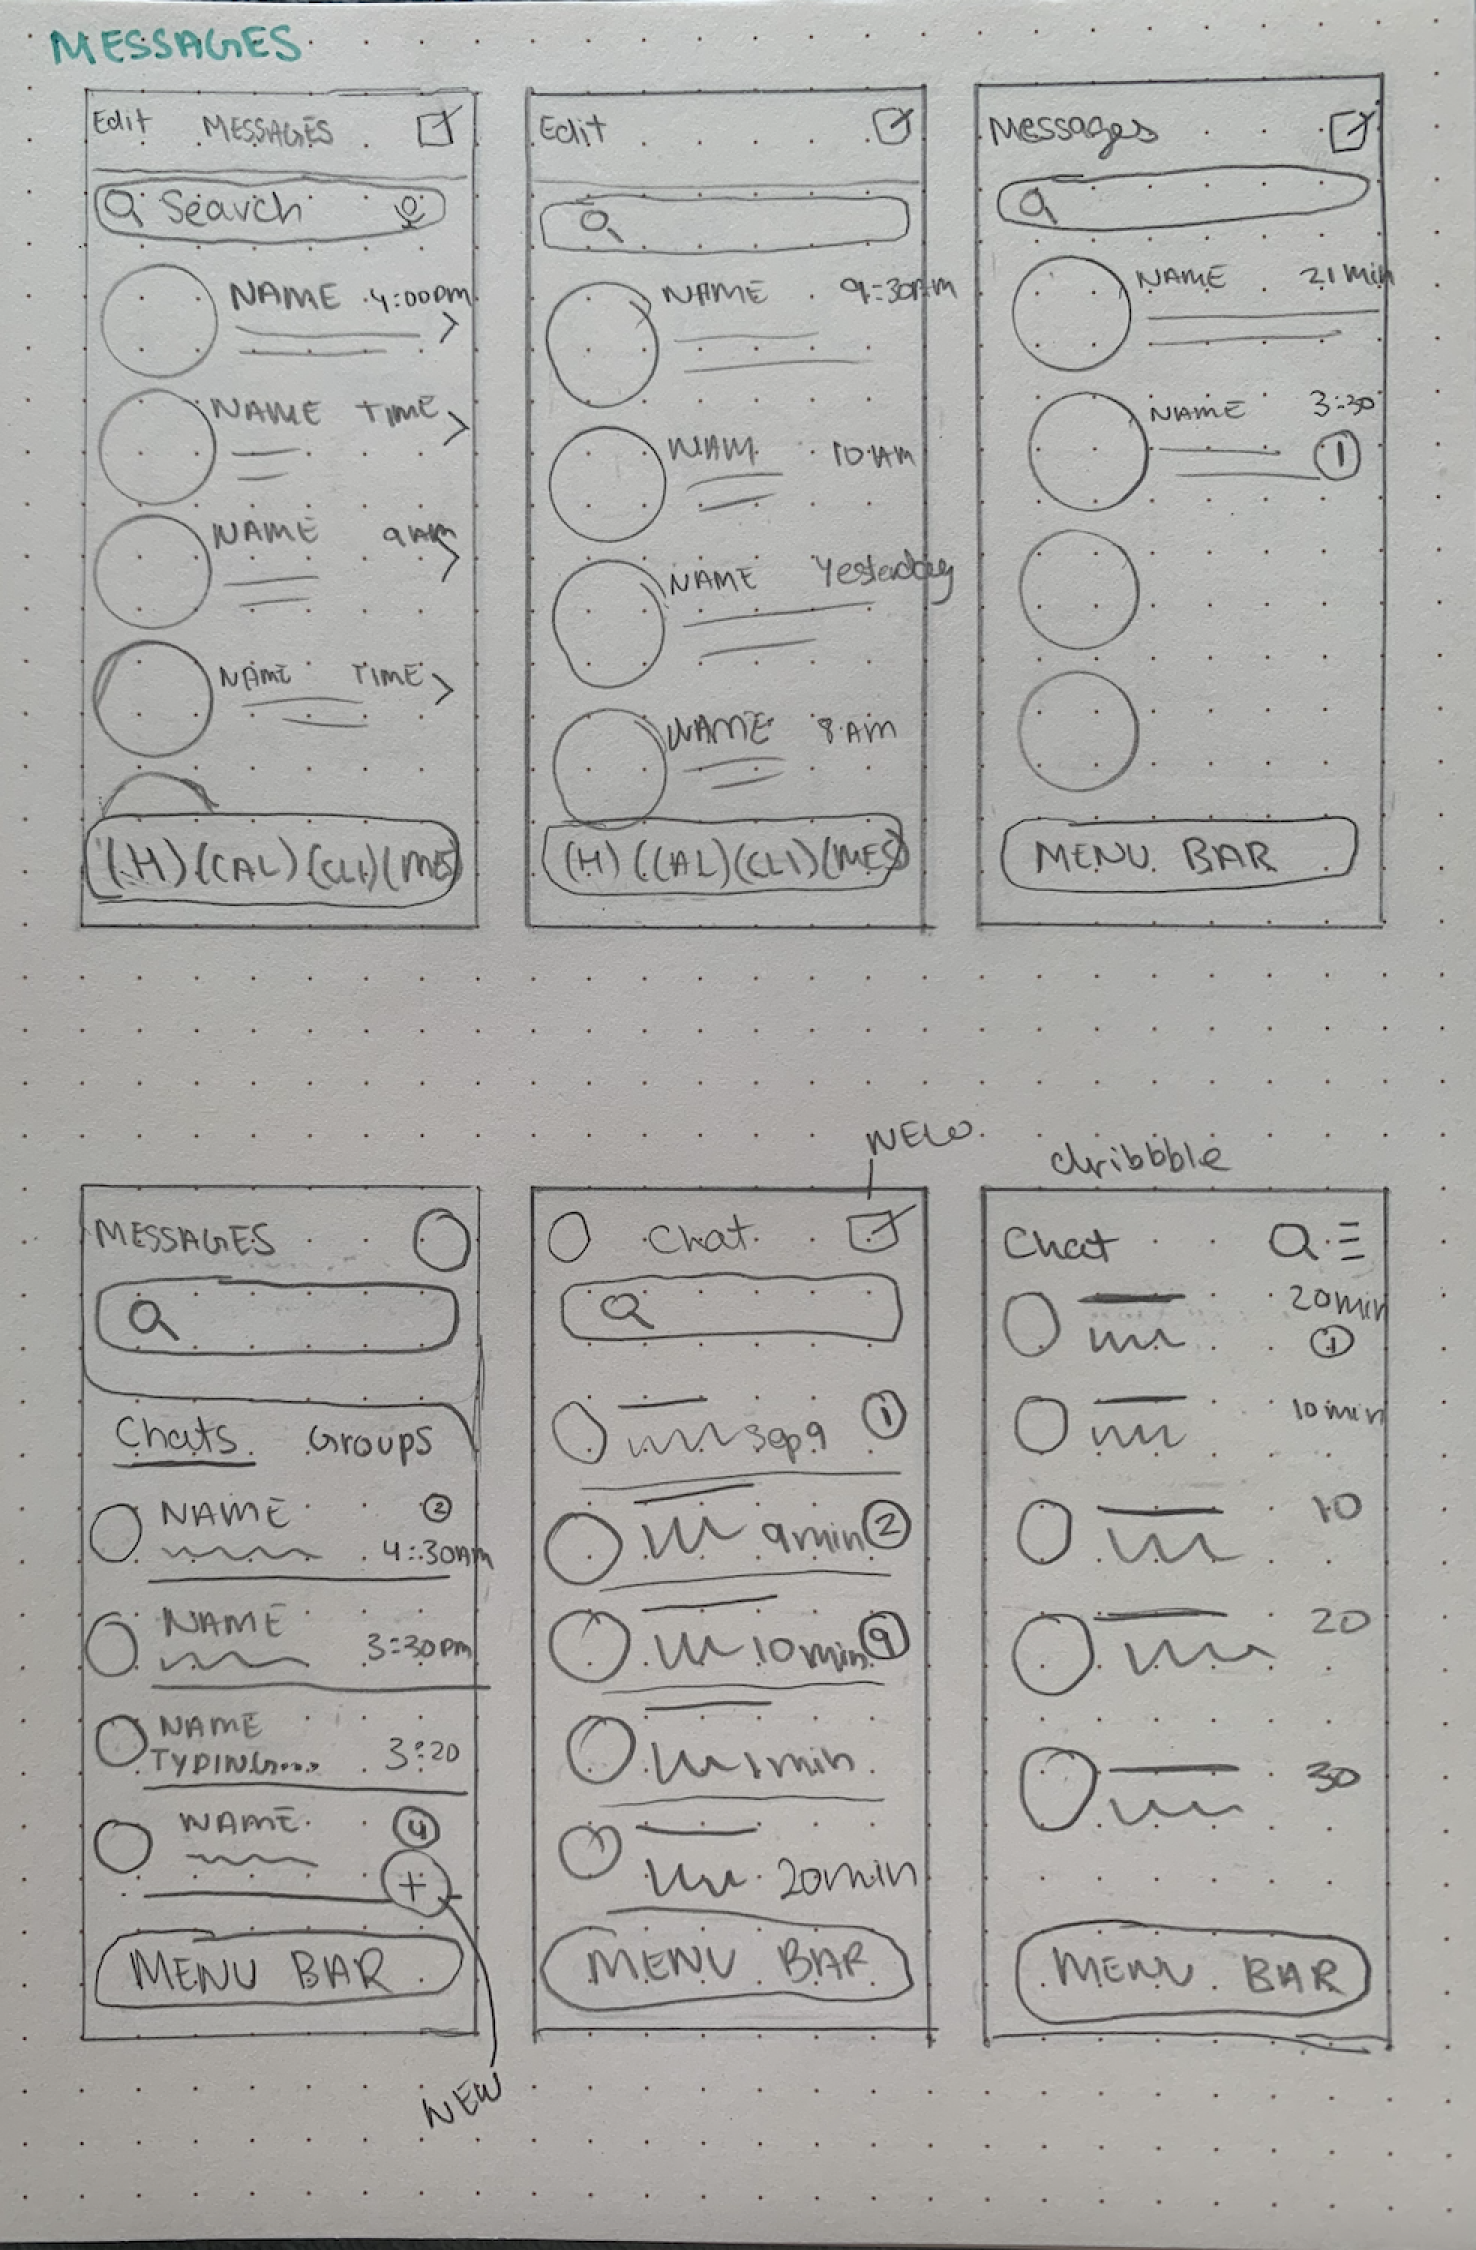 MESSAGES
Edit MESSAGES
Search
NAME 4:00pm
NAME TIME
NAME 9AM
NAME TIME
(H) (CAL) (CLI) (MES
Edit
NAME 9:30AM
NAM 10 AM
NAME Yesterday
NAME 8 AM
(H) (CAL) (CLI) (MES)
Messages
NAME 21 min
NAME 3:30
1
MENU BAR
MESSAGES
Chats Groups
NAME 2
4:30AM
NAME
3:30pm
NAME
TYPING.... 3:20
NAME 4
+
MENU BAR
NEW
NEW
Chat
1
Sep 9
9min 2
10min 9
1min
20min
MENU BAR
dribbble
Chat
20min
1
10min
10
20
30
MENU BAR